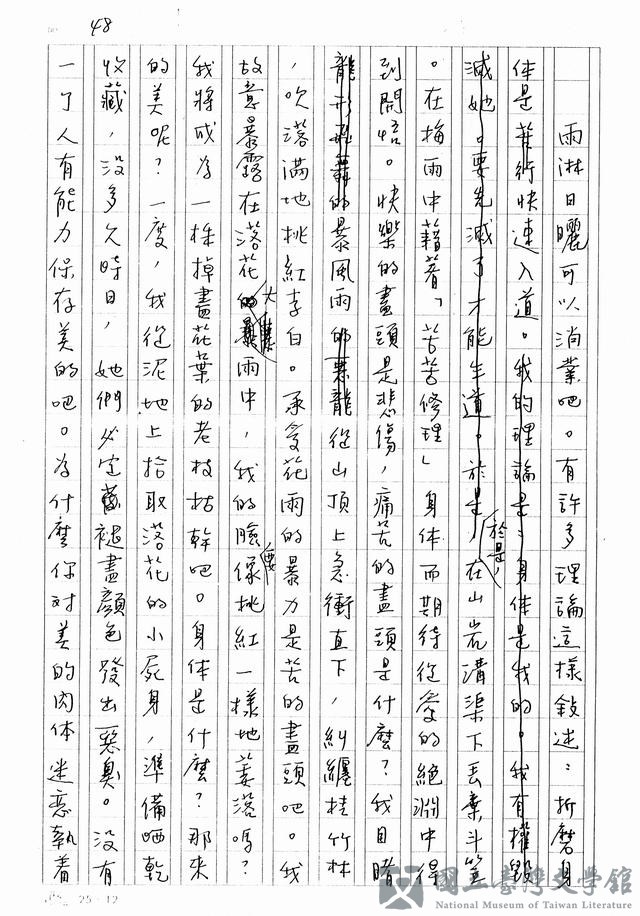 48
雨淋日曬可以消業吧。有許多理論這樣敍述：折磨身
体是苦行快速入道。我的理論是：身体是我的。我有權毀
滅她。要先滅了才能生道。於是，在山岩溝渠下丟棄斗笠
於是，
。在梅雨中藉着「苦苦修理」身体而期待從愛的絕淵中得
到開悟。快樂的盡頭是悲傷，痛苦的盡頭是什麼？我目睹
龍形飛舞的暴風雨的惡龍從山頂上急衝直下，糾纏桂竹林
，吹落滿地桃紅李白。承受花雨的暴力是苦的盡頭吧。我
故意暴露在落花的暴雨中，我的臉像桃紅一樣地萎落嗎？
大
要
我將成為一株掉盡花葉的老枝枯幹吧。身体是什麼？那來
的美呢？一度，我從泥地上拾取落花的小屍身，準備晒乾
收藏，沒多久時日，她們必定褪盡顏色發出惡臭。沒有
一个人有能力保存美的吧。為什麼你對美的肉体迷戀執着
25 12
國立臺灣文學館
National Museum of Taiwan Literature